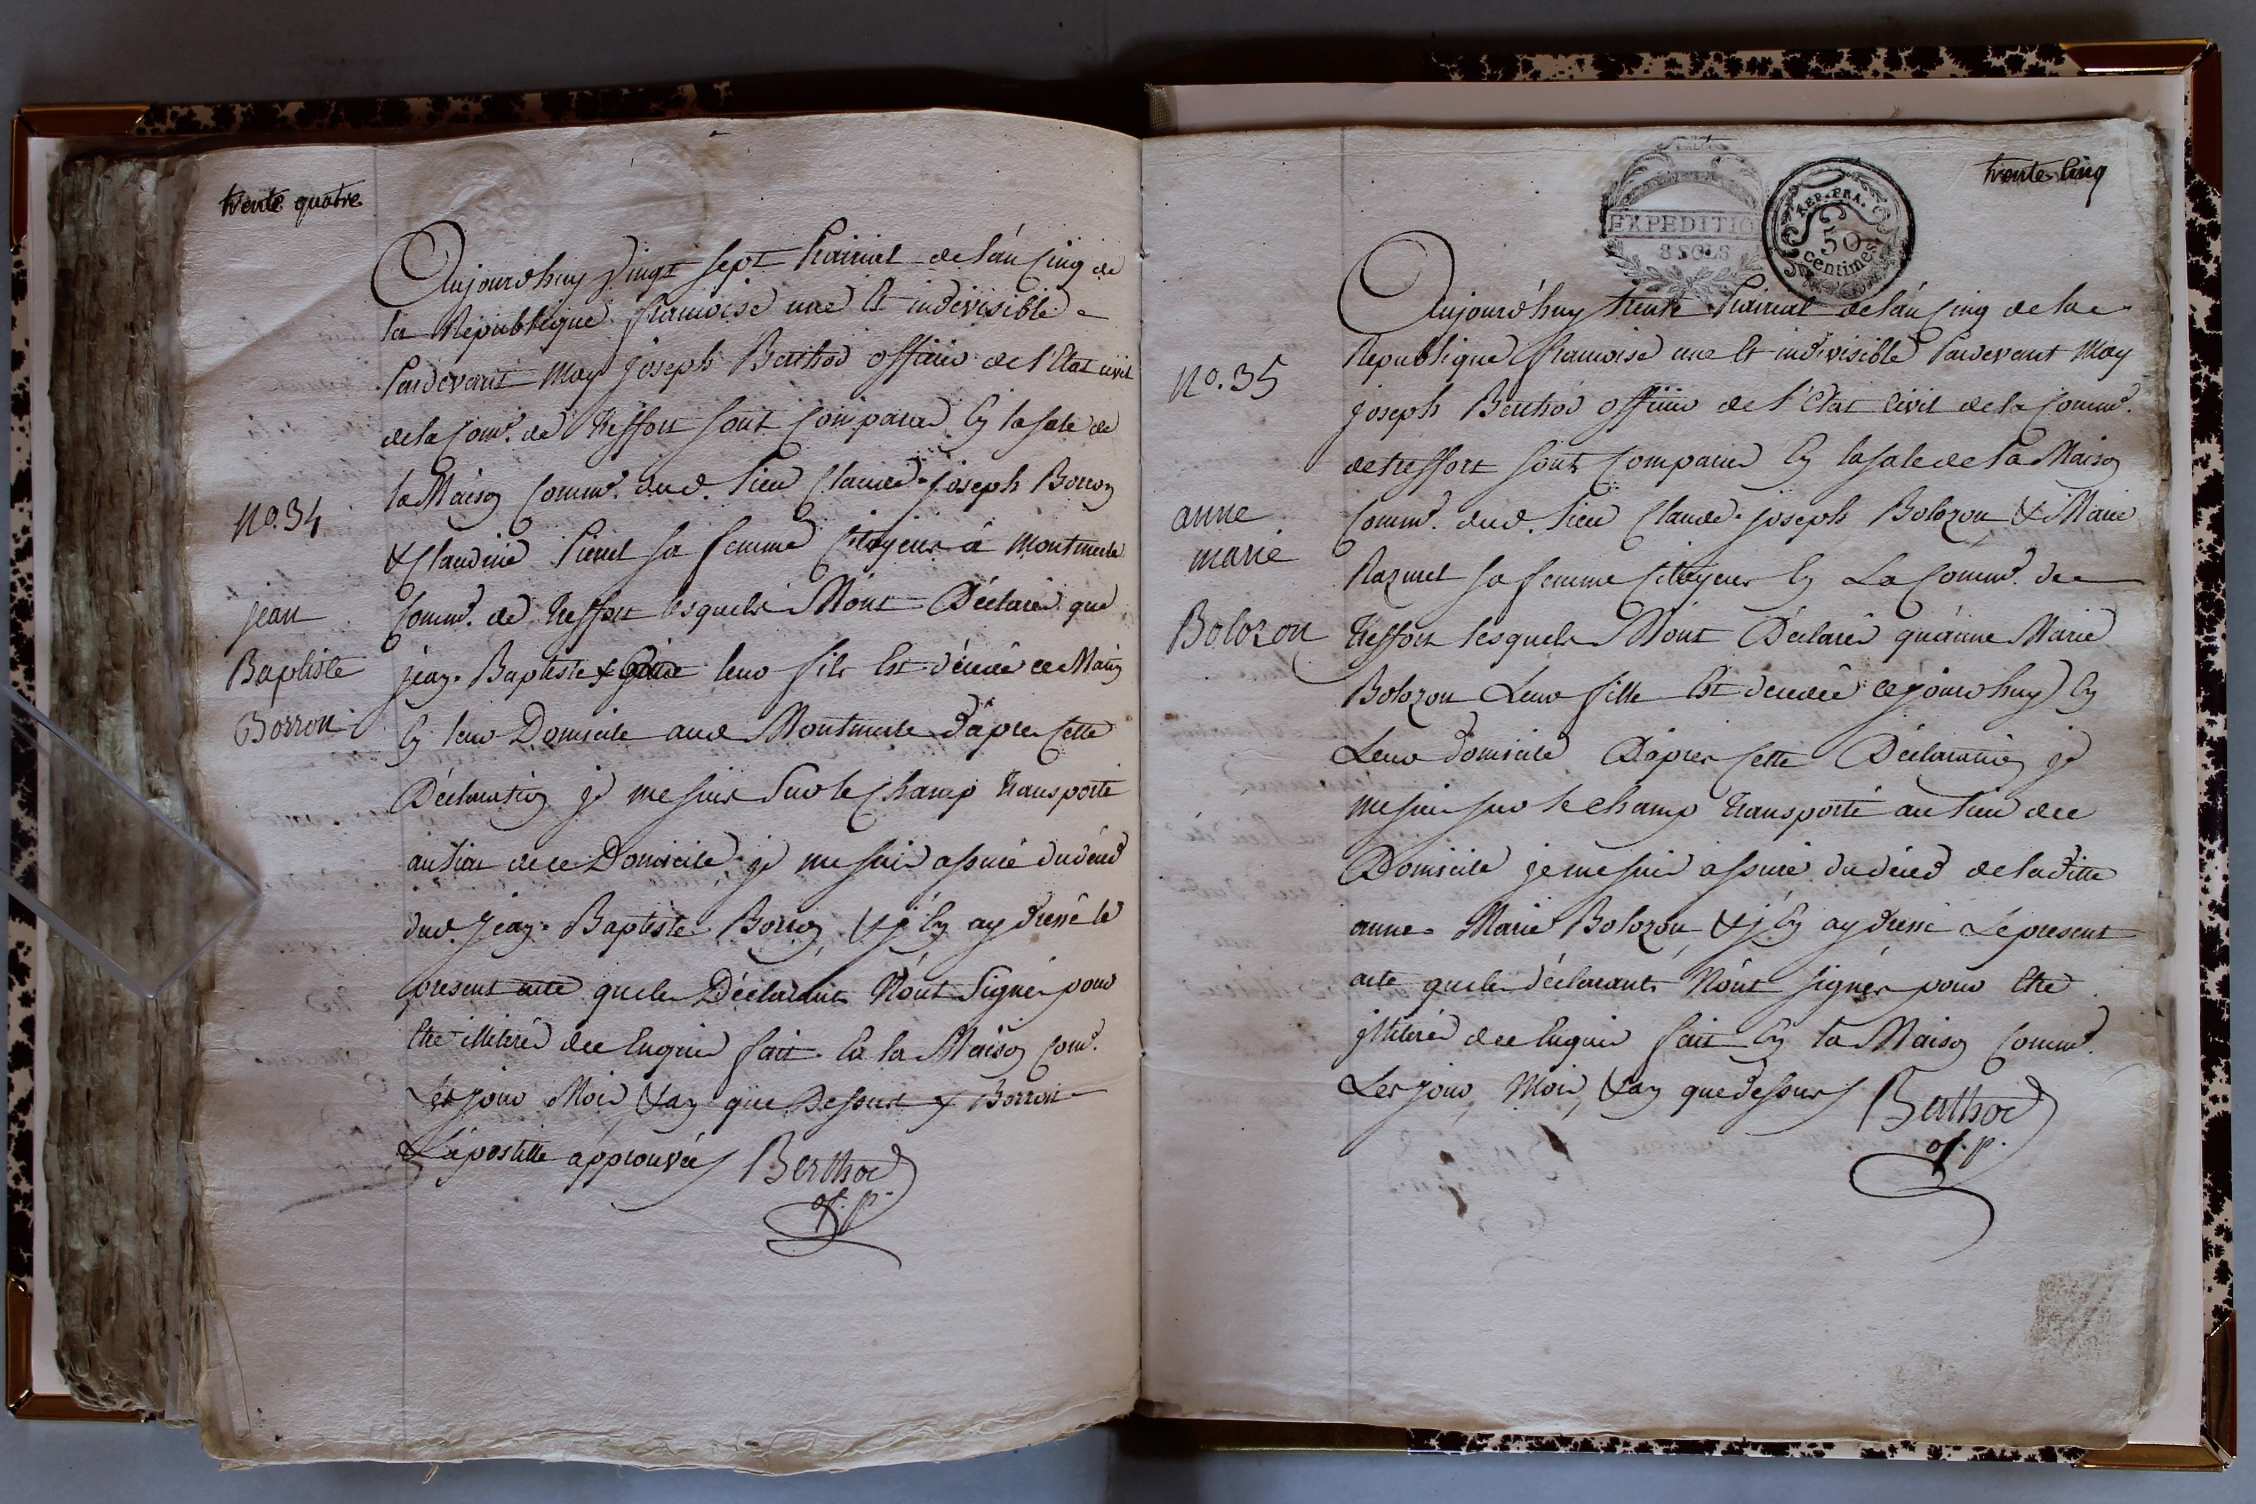 trente quatre
Aujourdhuy Vingt sept Prairial de l'an Cinq de
la Republique francoise une Et indevisible
Pardevant Moy Joseph Berthod officier de l'Etat civil
de la Com.e de treffort sont Comparus En la sale de
No. 34
la Maison Comm.e dud. Lieu Claude Joseph Borron
& Claudine Perret sa femme Citoyens a Montmerle
Comm.e de treffort lesquels M'ont Déclarés que
jean
Baptiste
Borron
jean Baptiste x leur fils Est décedé ce Matin
En leur Domicile aud Montmerle d'apres Cette
Déclaration je me suis Sur le Champ transporté
au Lieu de ce Domicile je me suis assuré du décès
dud. Jean Baptiste Borron & j'En ay dressé le
present acte que les Déclarants N'ont Signés pour
Etre illiterés de ce Enquis fait En la Maison Com.e
Les jour Mois & an que Dessus x Borron
L'apostille approuvée Berthod
of. p.
trente Cinq
EXPEDITIO
8 SOLS
REP. FRA.
50
centimes
Aujourd'huy trente Prairial de l'an Cinq de la
Republique francoise une Et indivisible Pardevant Moy
No. 35
Joseph Berthod officier de l'Etat Civil de la Comm.e
de treffort sont Comparus En la sale de la Maison
anne
marie
Bolozon
Comm.e dud. Lieu Claude Joseph Bolozon & Marie
Razurel sa femme Citoyens En La Comm.e de
treffort lesquels M'ont Déclarés qu'anne Marie
Bolozon Leur fille Est décedée cejourdhuy En
Leur domicile D'apres Cette Déclaration je
me suis sur le champ transporté au Lieu de ce
Domicile je me suis assuré du décès de laditte
anne Marie Bolozon & j'En ay dressé Le present
acte que les déclarants N'ont signés pour Etre
jlliterés de ce Enquis fait En la Maison Comm.e
Les jour, Mois, & an que dessus Berthod
of. p.